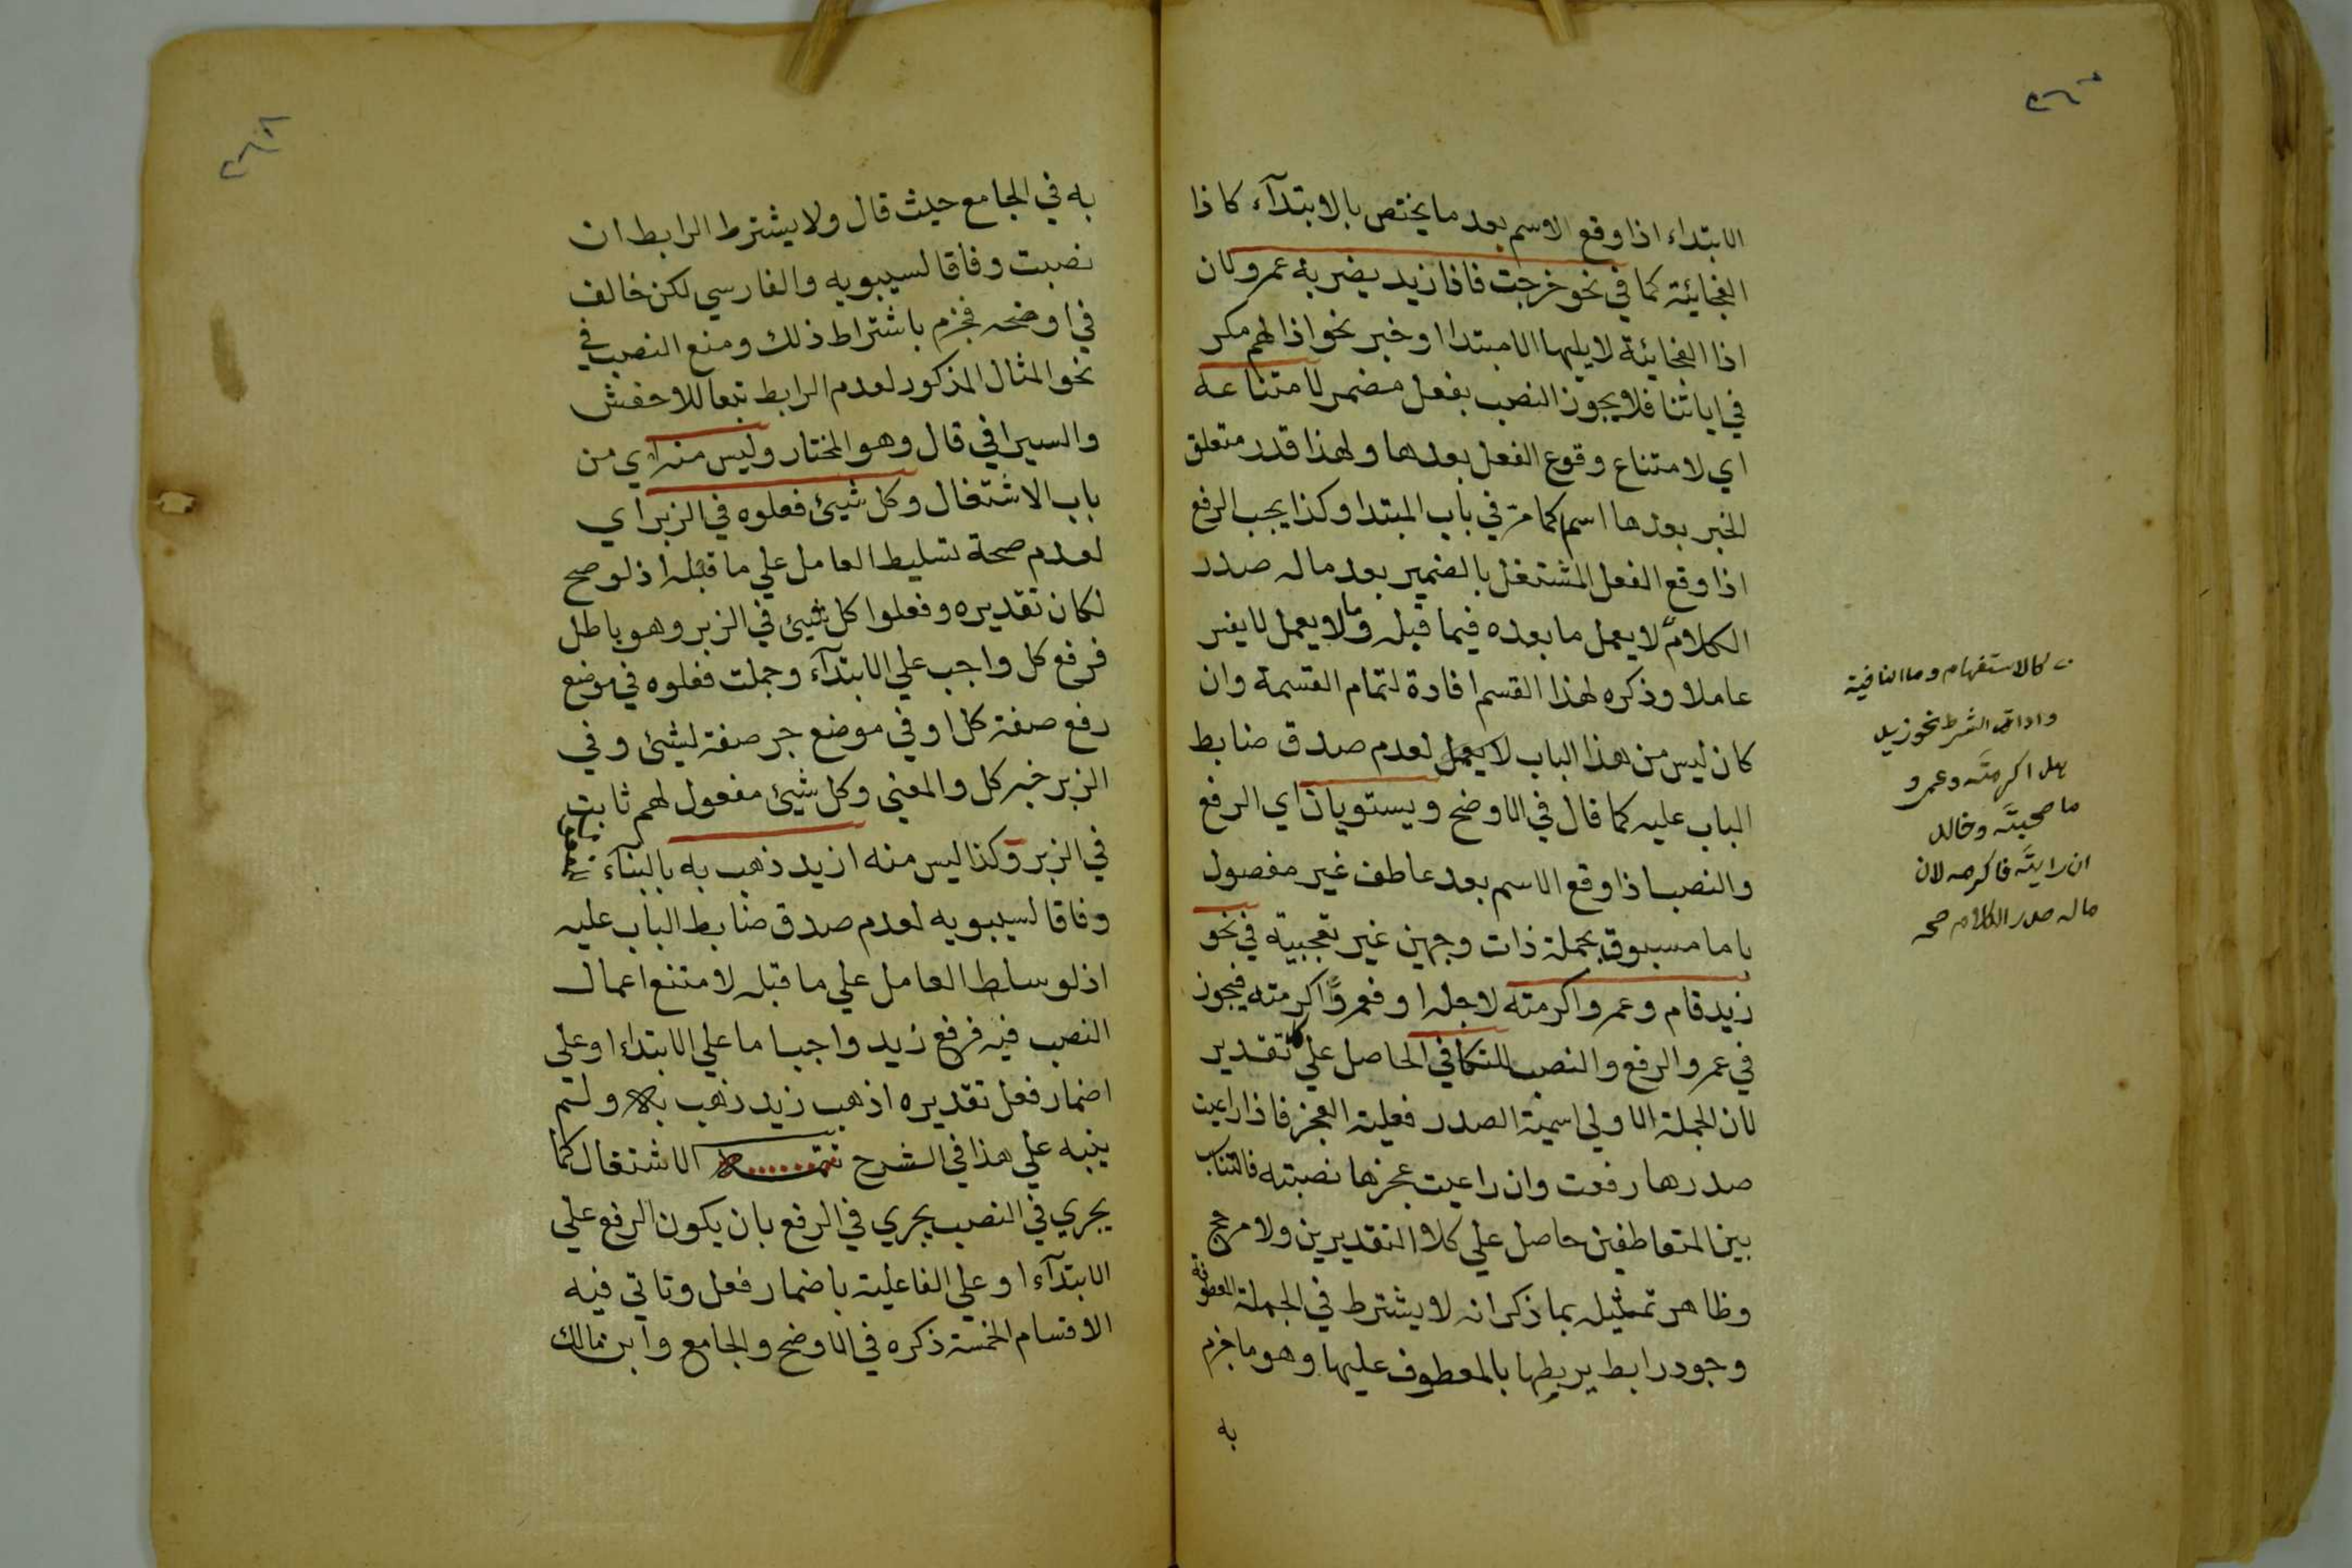 الابتداء اذا وقع الاسم بعد ما يختص بالابتدآء كاذا
الفجائية كما في نحو خرجت فاذا زيد يضربه عمرو لان
اذا الفجائية لا يليها الا مبتدا او خبر نحو اذا لهم مكر
في اياتنا فلا يجوز النصب بفعل مضمر لامتناعه
اي لامتناع وقوع الفعل بعدها ولهذا قدر متعلق
الخبر بعدها اسم كما مرّ في باب المبتدا وكذا يجب الرفع
اذا وقع الفعل المشتغل بالضمير بعد ماله صدر
الكلام لا يعمل ما بعده فيما قبله وما لا يعمل لا يفسر
عاملا وذكره لهذا القسم افادة لتمام القسمة وان
كان ليس من هذا الباب لعدم صدق ضابط
الباب عليه كما قال في الاوضح ويستويان اي الرفع
والنصب اذا وقع الاسم بعد عاطف غير مفصول
باما مسبوق بجملة ذات وجهين غير تعجبية في نحو
زيد قام وعمرو اكرمته لاجله او فعمروًا اكرمته فيجوز
في عمرو الرفع والنصب للتكافي الحاصل علي كل تقدير
لان الجملة الاولي اسمية الصدر فعلية العجز فاذا راعيت
صدرها رفعت وان راعيت عجزها نصبته فالتناسب
بين المتعاطفين حاصل علي كلا التقديرين ولا مرجح
وظاهر تمثيله بما ذكر انه لا يشترط في الجملة المعطوفة
وجود رابط يربطها بالمعطوف عليها وهو ما جزم
به
كالاستفهام وما النافية
وادات الشرط نحو زيد
هل اكرمته وعمرو
ما صحبته وخالد
ان رايته فاكرمه لان
ماله صدر الكلام صح
به في الجامع حيث قال ولا يشترط الرابط ان
نصبت وفاقا لسيبويه والفارسي لكن خالف
في اوضحه فجزم باشتراط ذلك ومنع النصب في
نحو المثال المذكور لعدم الرابط تبعا للاخفش
والسيرافي قال وهو المختار وليس منه اي من
باب الاشتغال وكل شيئ فعلوه في الزبر اي
لعدم صحة تسليط العامل علي ما قبله اذ لو صح
لكان تقديره وفعلوا كل شيئ في الزبر وهو باطل
فرفع كل واجب علي الابتدآء وجملت فعلوه في موضع
رفع صفة كل او في موضع جر صفة لشيئ وفي
الزبر خبر كل والمعني وكل شيئ مفعول لهم ثابت
في الزبر وكذا ليس منه ازيد ذهب به بالبناء للمفعول
وفاقا لسيبويه لعدم صدق ضابط الباب عليه
اذ لو سلط العامل علي ما قبله لامتنع اعمال
النصب فيه فرفع زيد واجب اما علي الابتداء او علي
اضمار فعل تقديره اذهب زيد ذهب به ولم
ينبه علي هذا في الشرح تتمة الاشتغال كما
يجري في النصب يجري في الرفع بان يكون الرفع علي
الابتدآء او علي الفاعلية باضمار فعل وتاتي فيه
الاقسام الخمسة ذكره في الاوضح والجامع وابن مالك